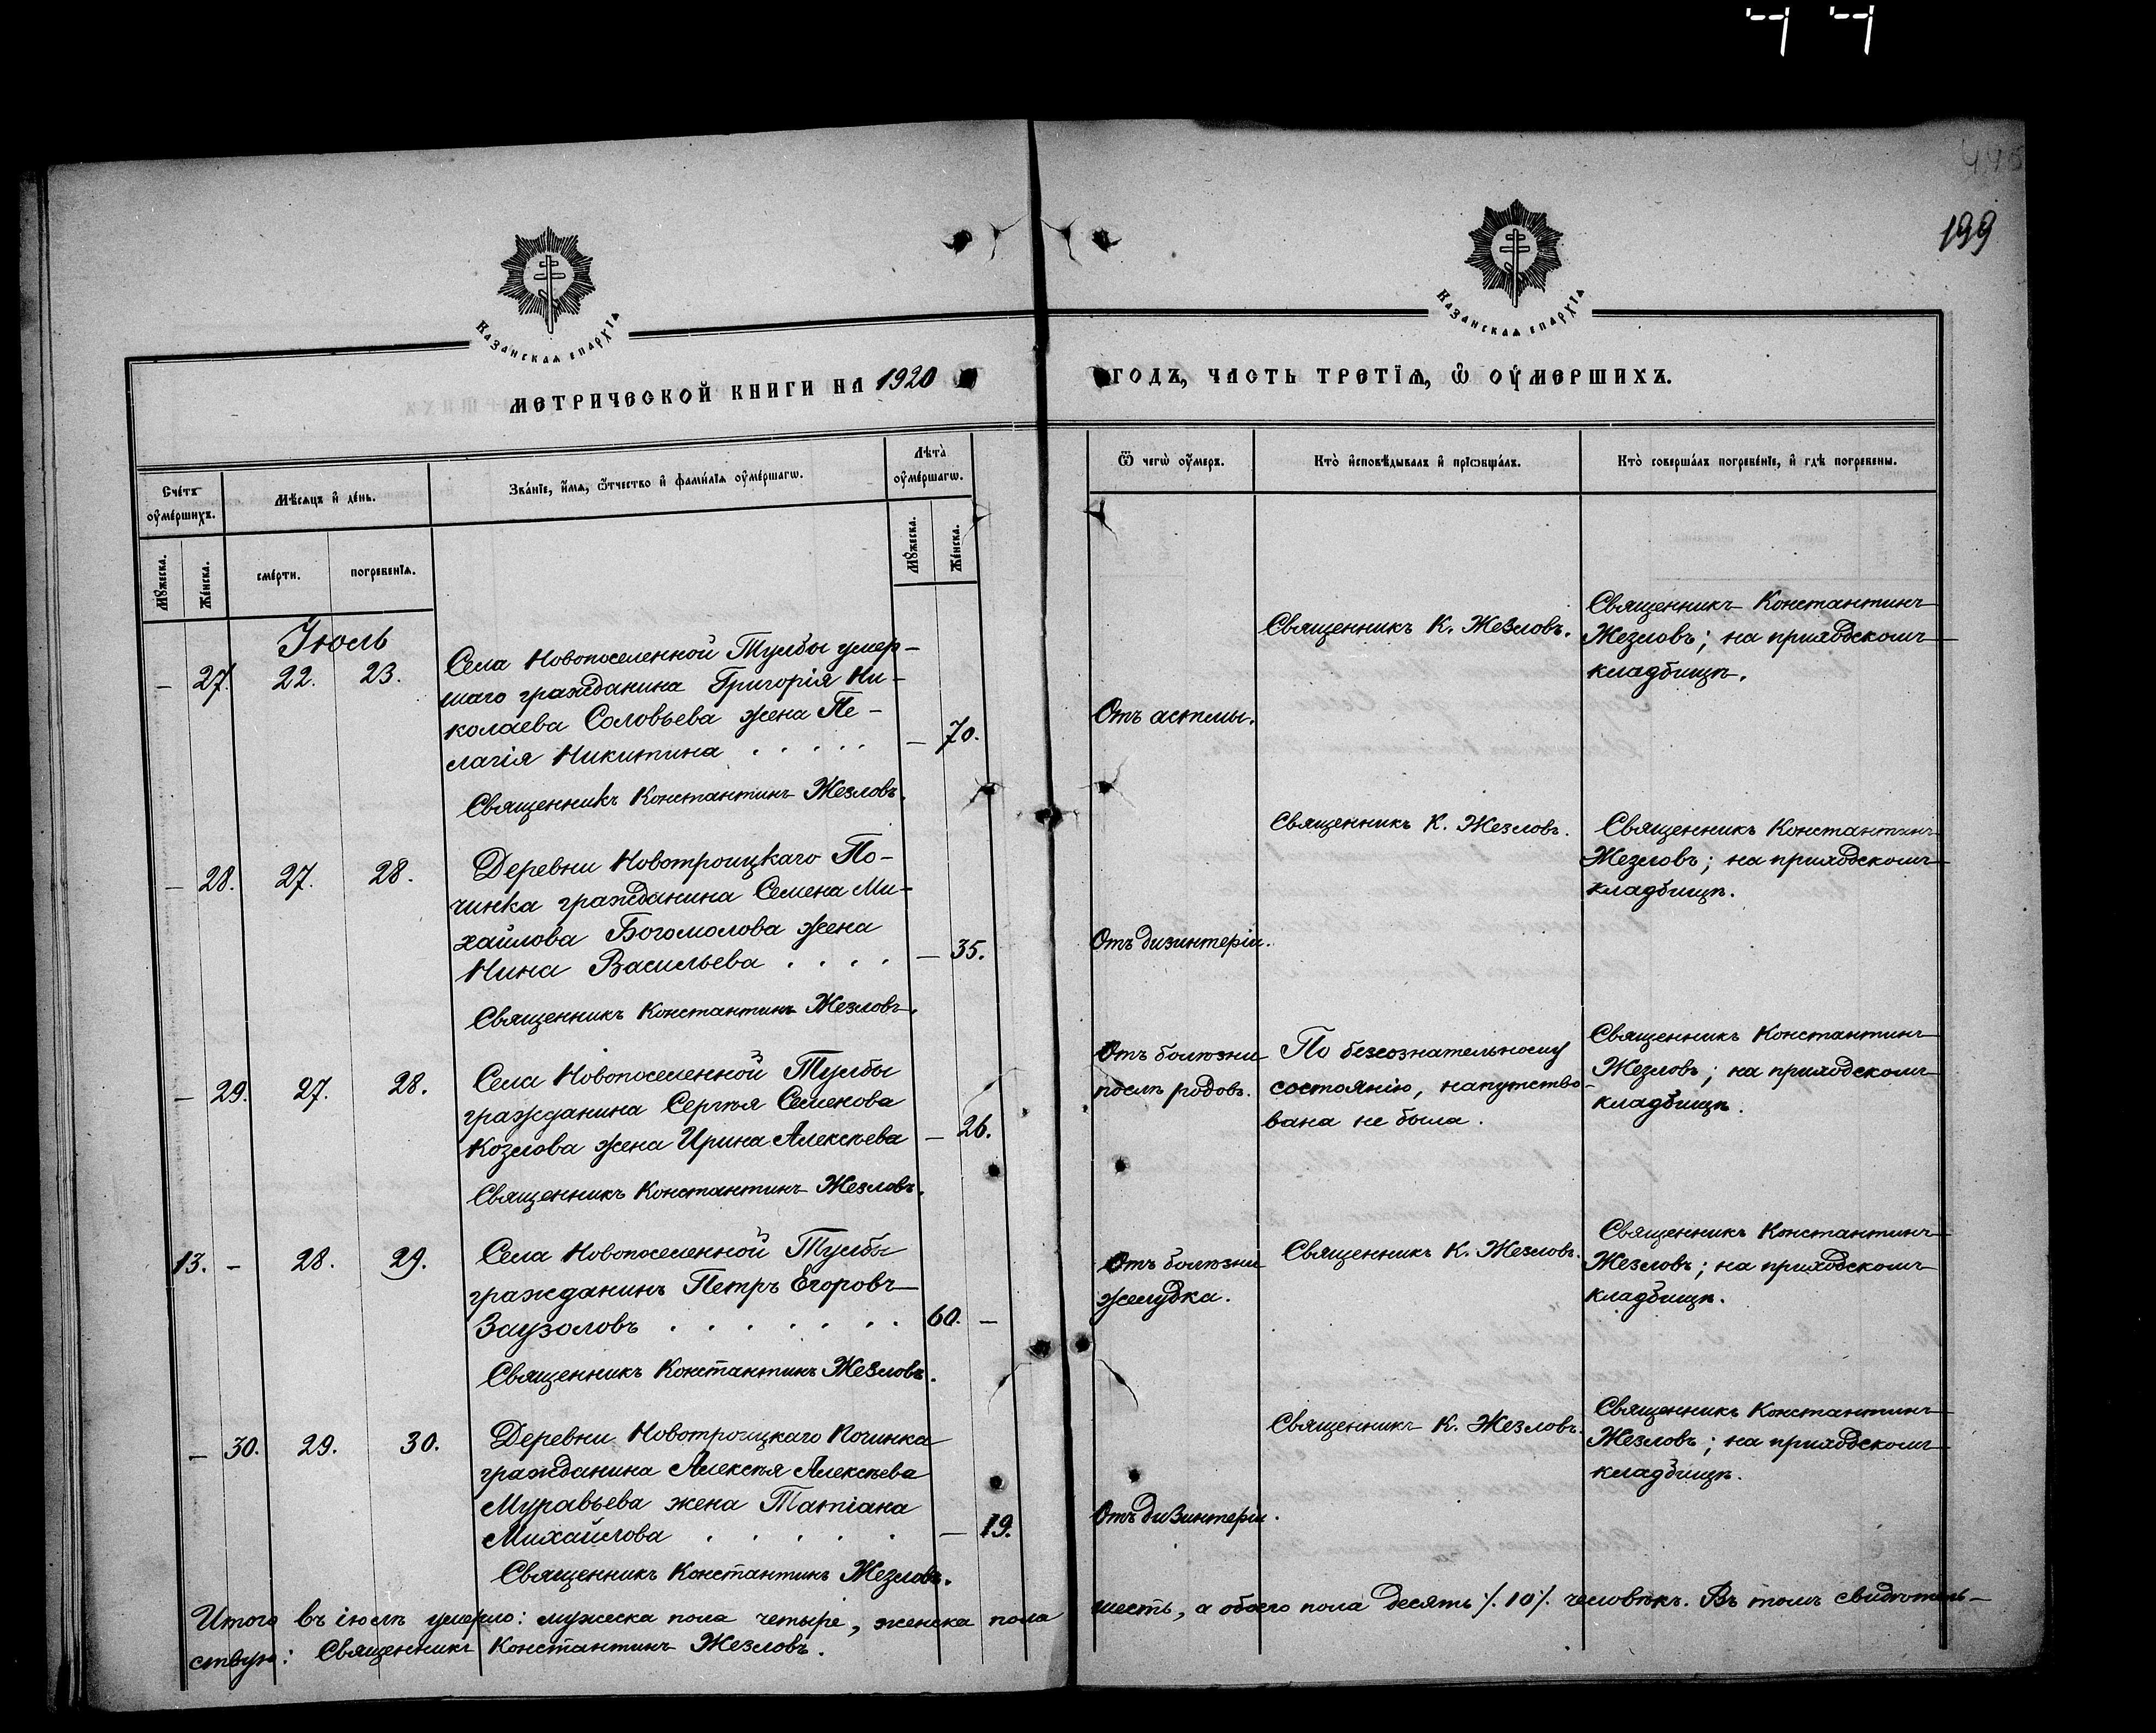 199
Казанская епархїѧ
Казанская епархїѧ
МЕТРИЧЕСКОЙ КНИГИ НА 1920
ГОДЪ, ЧАСТЬ ТРЕТЇѦ, Ѡ ОУМЕРШИХЪ.
Счетъ оумершихъ.
Мѣсяцъ и день.
Званїе, имя, ѿчество и фамилїя оумершагѡ.
Лѣта оумершагѡ.
Ѿ чегѡ оумеръ.
Кто исповѣдывалъ и прїѡбщалъ.
Кто совершалъ погребенїе, и гдѣ погребены.
Мꙋжеска.
Женска.
смерти.
погребенїя.
Мꙋжеска.
Женска.
Іюль
– 27. 22. 23.
Села Новопоселенной Тулбы умер-
шаго гражданина Григорія Ни-
колаева Соловьева жена Пе-
лагія Никитина . . . . . – 70.
Священникъ Константинъ Жезловъ.
Отъ астмы.
Священникъ К. Жезловъ.
Священникъ Константинъ
Жезловъ; на приходскомъ
кладбищѣ.
– 28. 27. 28.
Деревни Новотроицкаго По-
чинка гражданина Семена Ми-
хайлова Богомолова жена
Нина Васильева . . . . – 35.
Священникъ Константинъ Жезловъ.
Отъ дизинтеріи.
Священникъ К. Жезловъ.
Священникъ Константинъ
Жезловъ; на приходскомъ
кладбищѣ.
– 29. 27. 28.
Села Новопоселенной Тулбы
гражданина Сергѣя Семенова
Козлова жена Ирина Алексѣева – 26.
Священникъ Константинъ Жезловъ.
Отъ болѣзни
послѣ родовъ.
По безсознательному
состоянію, напутство-
вана не была.
Священникъ Константинъ
Жезловъ; на приходскомъ
кладбищѣ.
13. – 28. 29.
Села Новопоселенной Тулбы
гражданинъ Петръ Егоровъ
Заузоловъ . . . . . . . 60. –
Священникъ Константинъ Жезловъ.
Отъ болѣзни
желудка.
Священникъ К. Жезловъ.
Священникъ Константинъ
Жезловъ; на приходскомъ
кладбищѣ.
– 30. 29. 30.
Деревни Новотроицкаго Починка
гражданина Алексѣя Алексѣева
Муравьева жена Татіана
Михайлова . . . . . – 19.
Священникъ Константинъ Жезловъ.
Отъ дизинтеріи.
Священникъ К. Жезловъ.
Священникъ Константинъ
Жезловъ; на приходскомъ
кладбищѣ.
Итого въ іюлѣ умерло: мужеска пола четыре, женска пола шесть, а обоего пола десять ./. 10 ./. человѣкъ. Въ томъ свидѣтель-
ствую: Священникъ Константинъ Жезловъ.